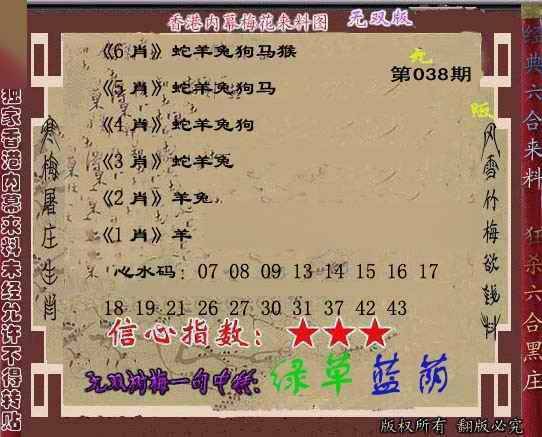 香港内幕梅花来料图 无双版
《6 肖》蛇羊兔狗马猴
无
第038期
《5 肖》蛇羊兔狗马
版
《4 肖》蛇羊兔狗
《3 肖》蛇羊兔
《2 肖》羊兔
《1 肖》羊
心水码：07 08 09 13 14 15 16 17
18 19 21 26 27 30 31 37 42 43
信心指数：★★★
无双狗梅一句中特：绿草蓝荫
版权所有 翻版必究
独家香港内幕来料未经允许不得转贴
寒梅屠庄生肖
风雪竹梅欲钱料
经典六合来料
狂杀六合黑庄